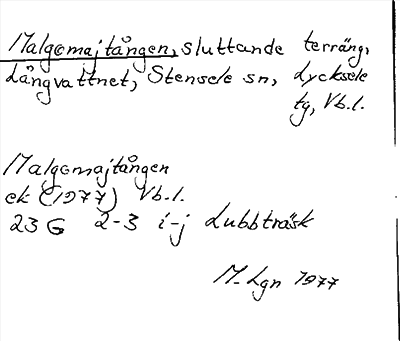 Malgomajtången, sluttande terräng,
Långvattnet, Stensele sn, Lycksele
tg, Vb.l.
Malgomajtången
ek (1977) Vb.l.
23 G 2-3 i-j Lubbträsk
M. Lgn 1977